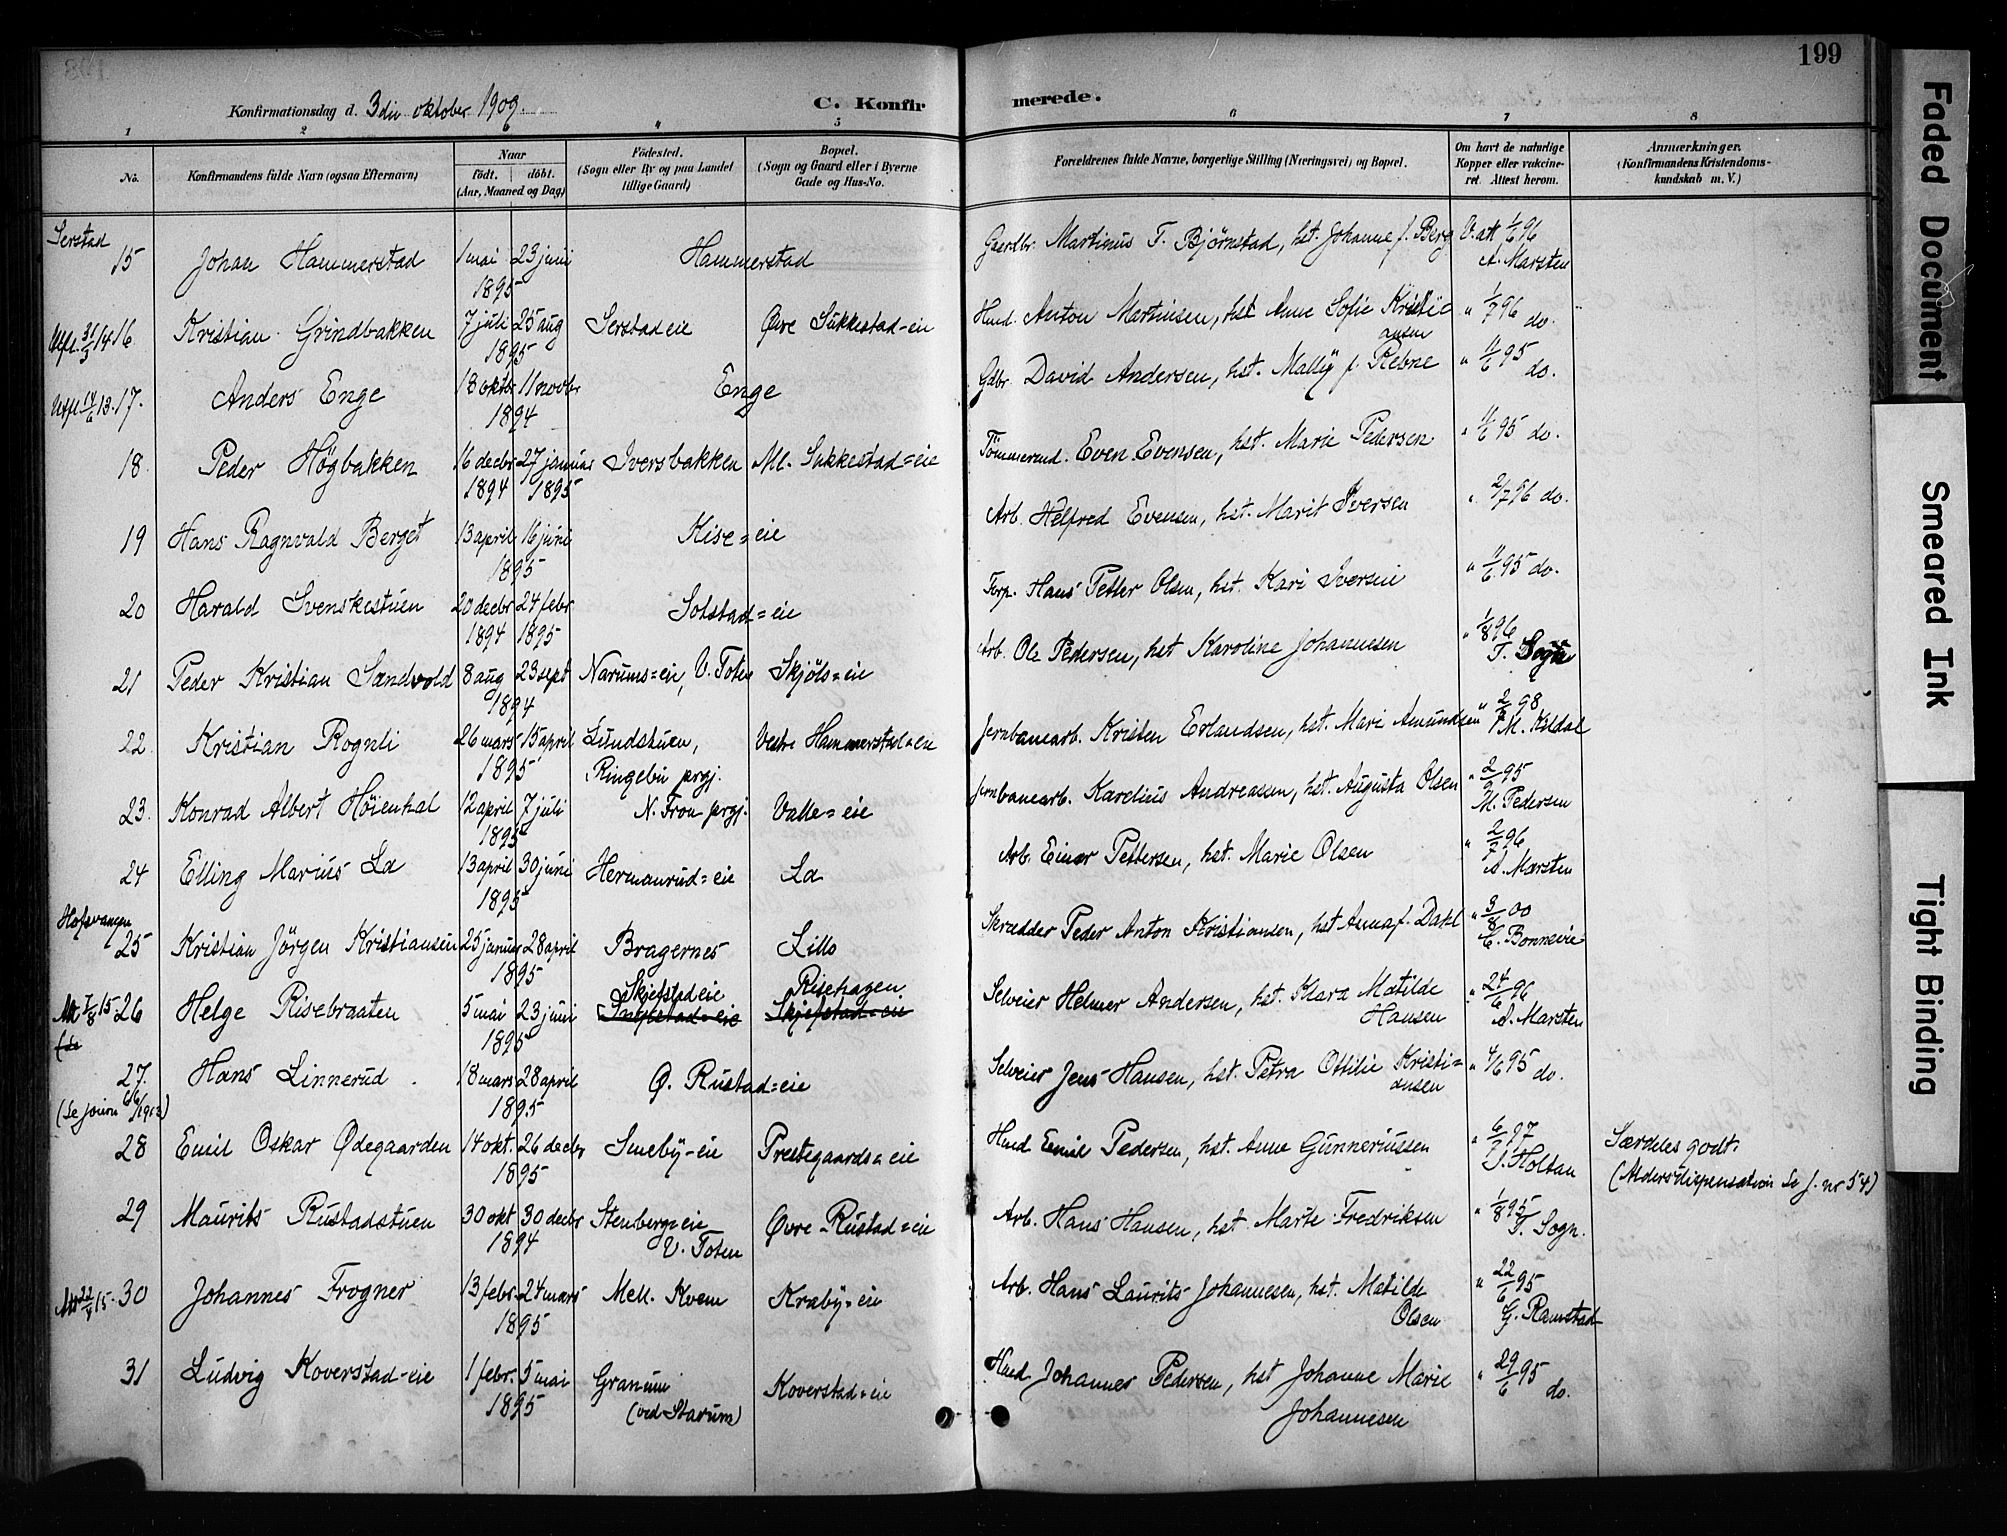 199
Konfirmationsdag d. 3die oktober 1909.
C. Konfirmerede.
1 2 5 6 7 8
No.
Konfirmandens fulde Navn (ogsaa Efternavn)
Naar
födt. döbt.
(Aar, Maaned og Dag)
Födested.
(Sogn eller By og paa Landet
tillige Gaard)
Bopæl.
(Sogn og Gaard eller i Byerne
Gade og Hus-No.
Forældrenes fulde Navne, borgerlige Stilling (Næringsvei) og Bopæl.
Om havt de naturlige
Kopper eller vakcine-
ret. Attest herom.
Anmærkninger.
(Konfirmandens Kristendoms-
kundskab m. V.)
Serstad
15 Johan Hammerstad 1 mai 23 juni Hammerstad Gaardbr. Martinus T. Bjørnstad, hst. Johanne f. Berg V. att 1/6 96
1895 A. Marsten
Utfl. 31/3 14 16 Kristian Grindbakken 7 juli 25 aug Serstad eie Øvre Sukkestad=eie Husmd. Anton Martinsen, hst Anne Sofie Kristi- " 1/7 96 do.
1895 ansen
Utfl. 14/6 13. 17. Anders Enge 18 oktbr 11 novbr Enge Gdbr. David Andersen, hst. Mally f. Rebne " 11/6 95 do.
1894
18. Peder Högbakken 16 decbr 27 januar Iversbakken Ml. Sukkestad=eie Tömmermd. Even Evensen, hst. Marie Pedersen " 11/6 95 do.
1894 1895
19 Hans Ragnvald Berget 13 april 16 juni Kise=eie Arb. Helfred Evensen, hst. Marit Iversen " 2/7 96 do.
1895
20 Harald Svenskestuen 20 decbr 24 febr Sotstad=eie Forp. Hans Petter Olsen, hst. Kari Iversen " 11/6 95 do.
1894 1895
21 Peder Kristian Sandvold 8 aug 23 sept Narums=eie, V. Toten Skjöls=eie Arb. Ole Pedersen, hst Karoline Johannesen " 1/8 96
1894 T. Sogn
22. Kristian Rognli 26 mars 15 april Lundstuen, Vestre Hammerstad=eie Jernbanearb. Kristen Erlandsen, hst. Mari Amundsen " 98
1895 Ringebu prgj. M. Kildal
23. Konrad Albert Höienhal 12 april 7 juli N. Fron prgj. Valle=eie Jernbanearb. Karelius Andreassen, hst. Augusta Olsen " 95
1895 M. Pedersen
24 Elling Marius La 13 april 30 juni Hermanrud=eie La Arb. Einar Pettersen, hst. Marie Olsen " 2/7 96
1895 A. Marsten
Hofsvangen
25 Kristian Jörgen Kristiansen 25 januar 28 april Bragernes Lillo Skrædder Peder Anton Kristiansen, hst Anna f. Dahl " 3/8 00
1895 C. Bonnevie
Skjefstad eie Risehagen
Att 7/8 15 26 Helge Risebraaten 5 mai 23 juni Skjefstad=eie Selveier Helmer Andersen, hst. Klara Matilde " 24/6 96
1895 Hansen A. Marsten
(se
27. Hans Linnerud 18 mars 28 april Ø. Rustad=eie Selveier Jens Hansen, hst. Petra Ottilie Kristi= " 4/6 95 do.
1895 ansen
(Se journ 6/6 1912)
28 Emil Oskar Ødegaarden 14 okt. 26 decbr Smeby=eie Prestegaards=eie Husmd Emil Pedersen, hst. Anne Gunneriussen " 6/7 97 Særdeles godt.
1895 J. Holtan (Aldersdispensation Se J. nr 54)
29 Maurits Rustadstuen 30 okt 30 decbr Stensberg=eie Øvre-Rustad=eie Arb. Hans Hansen, hst. Marte Fredriksen " 1/8 95
1894 V. Toten T. Sogn.
Att 22/4 15. 30 Johannes Frogner 13 febr. 24 mars Mell. Kvem Kraby=eie Arb. Hans Laurits Johannesen, hst. Matilde " 22/6 95
1895 Olsen G. Ramstad
31 Ludvig Koverstad-eie 1 febr. 5 mai Granum Koverstad=eie Husmd Johannes Pedersen, hst Johanne Marie " 29/6 95 do.
1895 (ved Starum) Johannesen
Faded Document
Smeared Ink
Tight Binding